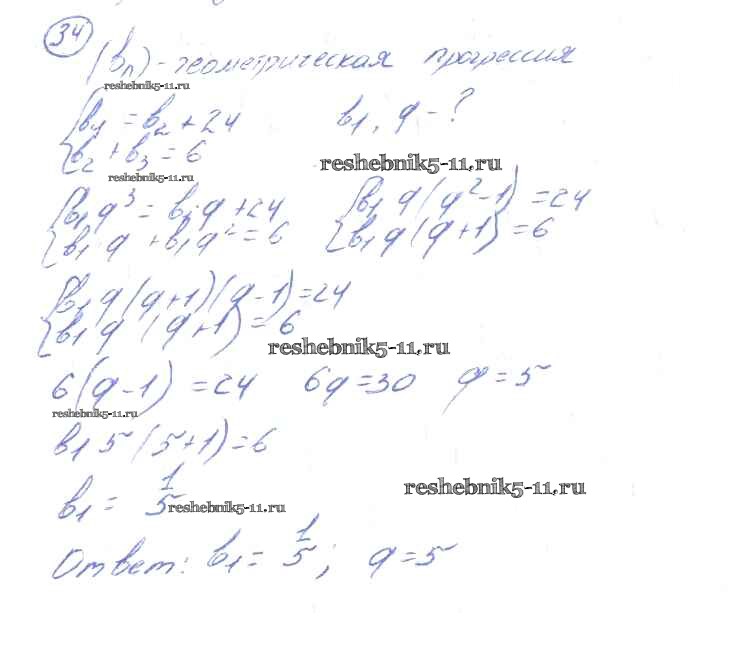 34
(bn) - геометрическая прогрессия
reshebnik5-11.ru
{b4 = b2 + 24 b1, q - ?
{b2 + b3 = 6 reshebnik5-11.ru
reshebnik5-11.ru
{b1q³ = b1q + 24 {b1q(q²-1) = 24
{b1q + b1q² = 6 {b1q(q+1) = 6
{b1q(q+1)(q-1) = 24
{b1q(q+1) = 6
reshebnik5-11.ru
6(q-1) = 24 6q = 30 q = 5
reshebnik5-11.ru
b1 5(5+1) = 6
b1 = 1/5 reshebnik5-11.ru reshebnik5-11.ru
Ответ: b1 = 1/5; q = 5